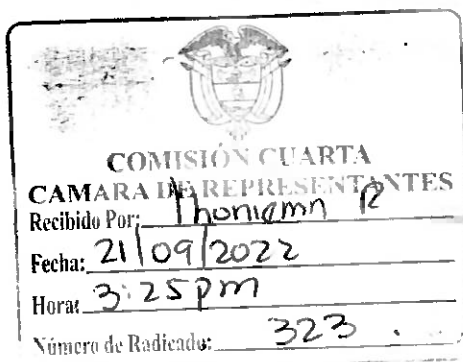 COMISIÓN CUARTA
CAMARA DE REPRESENTANTES
Recibido Por: R
Fecha: 21/09/2022
Hora: 3:25pm
Número de Radicado: 323